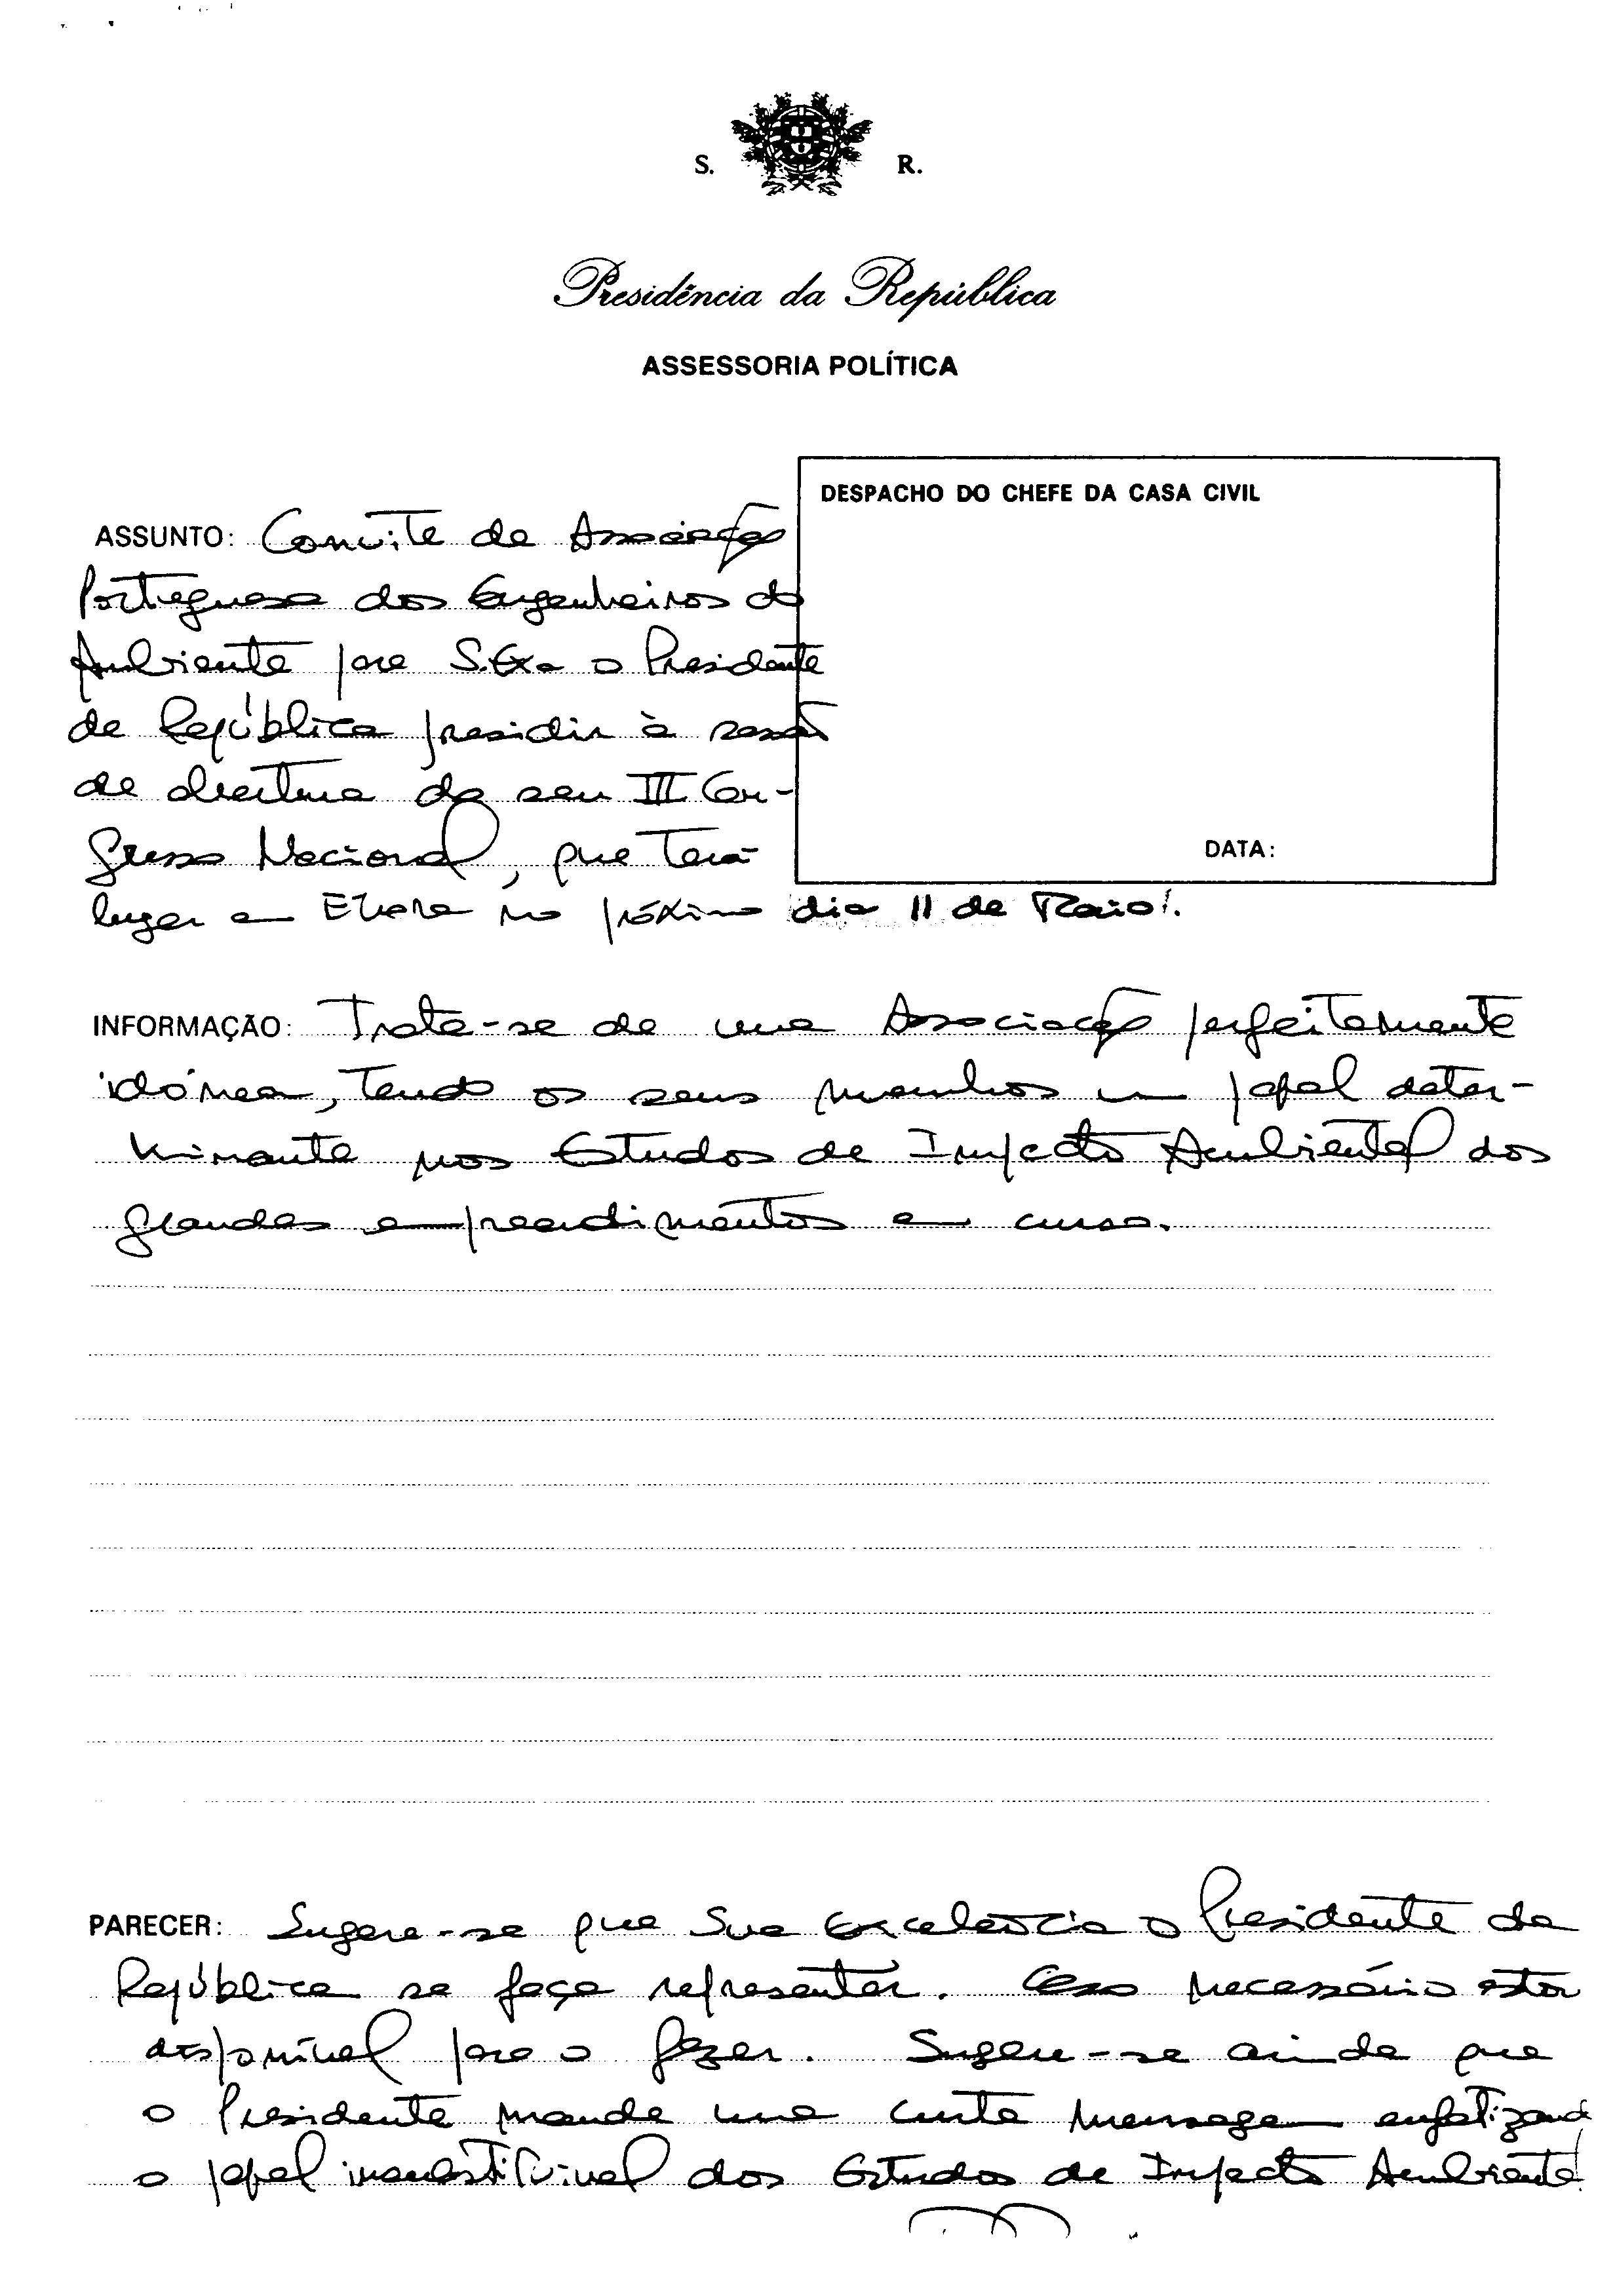 S. R.
Presidência da República
ASSESSORIA POLÍTICA
DESPACHO DO CHEFE DA CASA CIVIL
DATA:
ASSUNTO: Convite da Associação
Portuguesa dos Engenheiros do
Ambiente para S.Exa o Presidente
da República presidir à sessão
de abertura do seu III Con-
gresso Nacional, que terá
lugar em Évora no próximo dia 11 de Maio.
INFORMAÇÃO: Trata-se de uma Associação perfeitamente
idónea, tendo os seus membros um papel deter-
minante nos Estudos de Impacto Ambiental dos
grandes empreendimentos em curso.
PARECER: Sugere-se que Sua Excelência o Presidente da
República se faça representar. Caso necessário estou
disponível para o fazer. Sugere-se ainda que
o Presidente mande uma curta mensagem enfatizando
o papel insubstituível dos Estudos de Impacto Ambiental